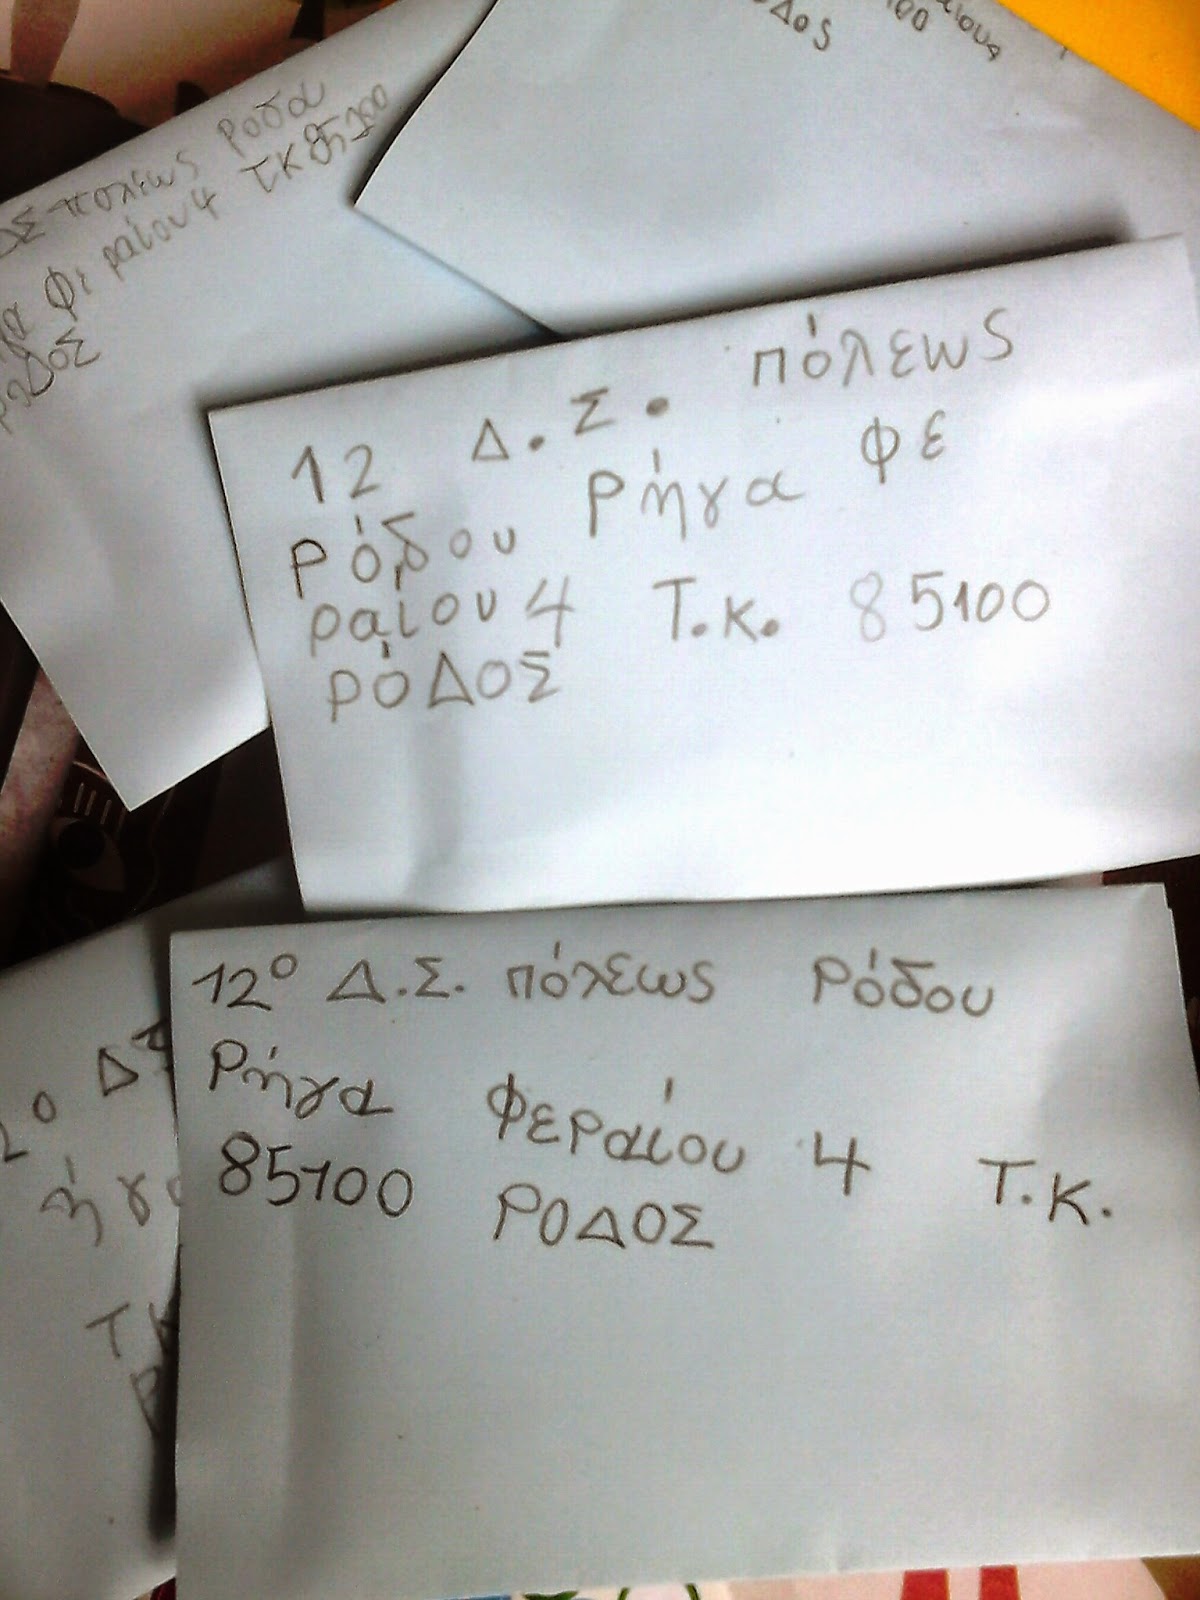 όδος
100
αίους
ΔΣ πολέως Ροδα
Φι ραίου 4 ΤΚ 85100
ροΔΟΣ
12 Δ.Σ. πόλεως
Ρόδου Ρήγα Φε
ραίου 4 Τ.κ. 85100
ρόΔΟΣ
12º Δ.Σ. πόλεως Ρόδου
Ρήγα Φεραίου 4 Τ.Κ.
85100 ΡΟΔΟΣ
2º ΔΣ
ήγα
ΤΚ